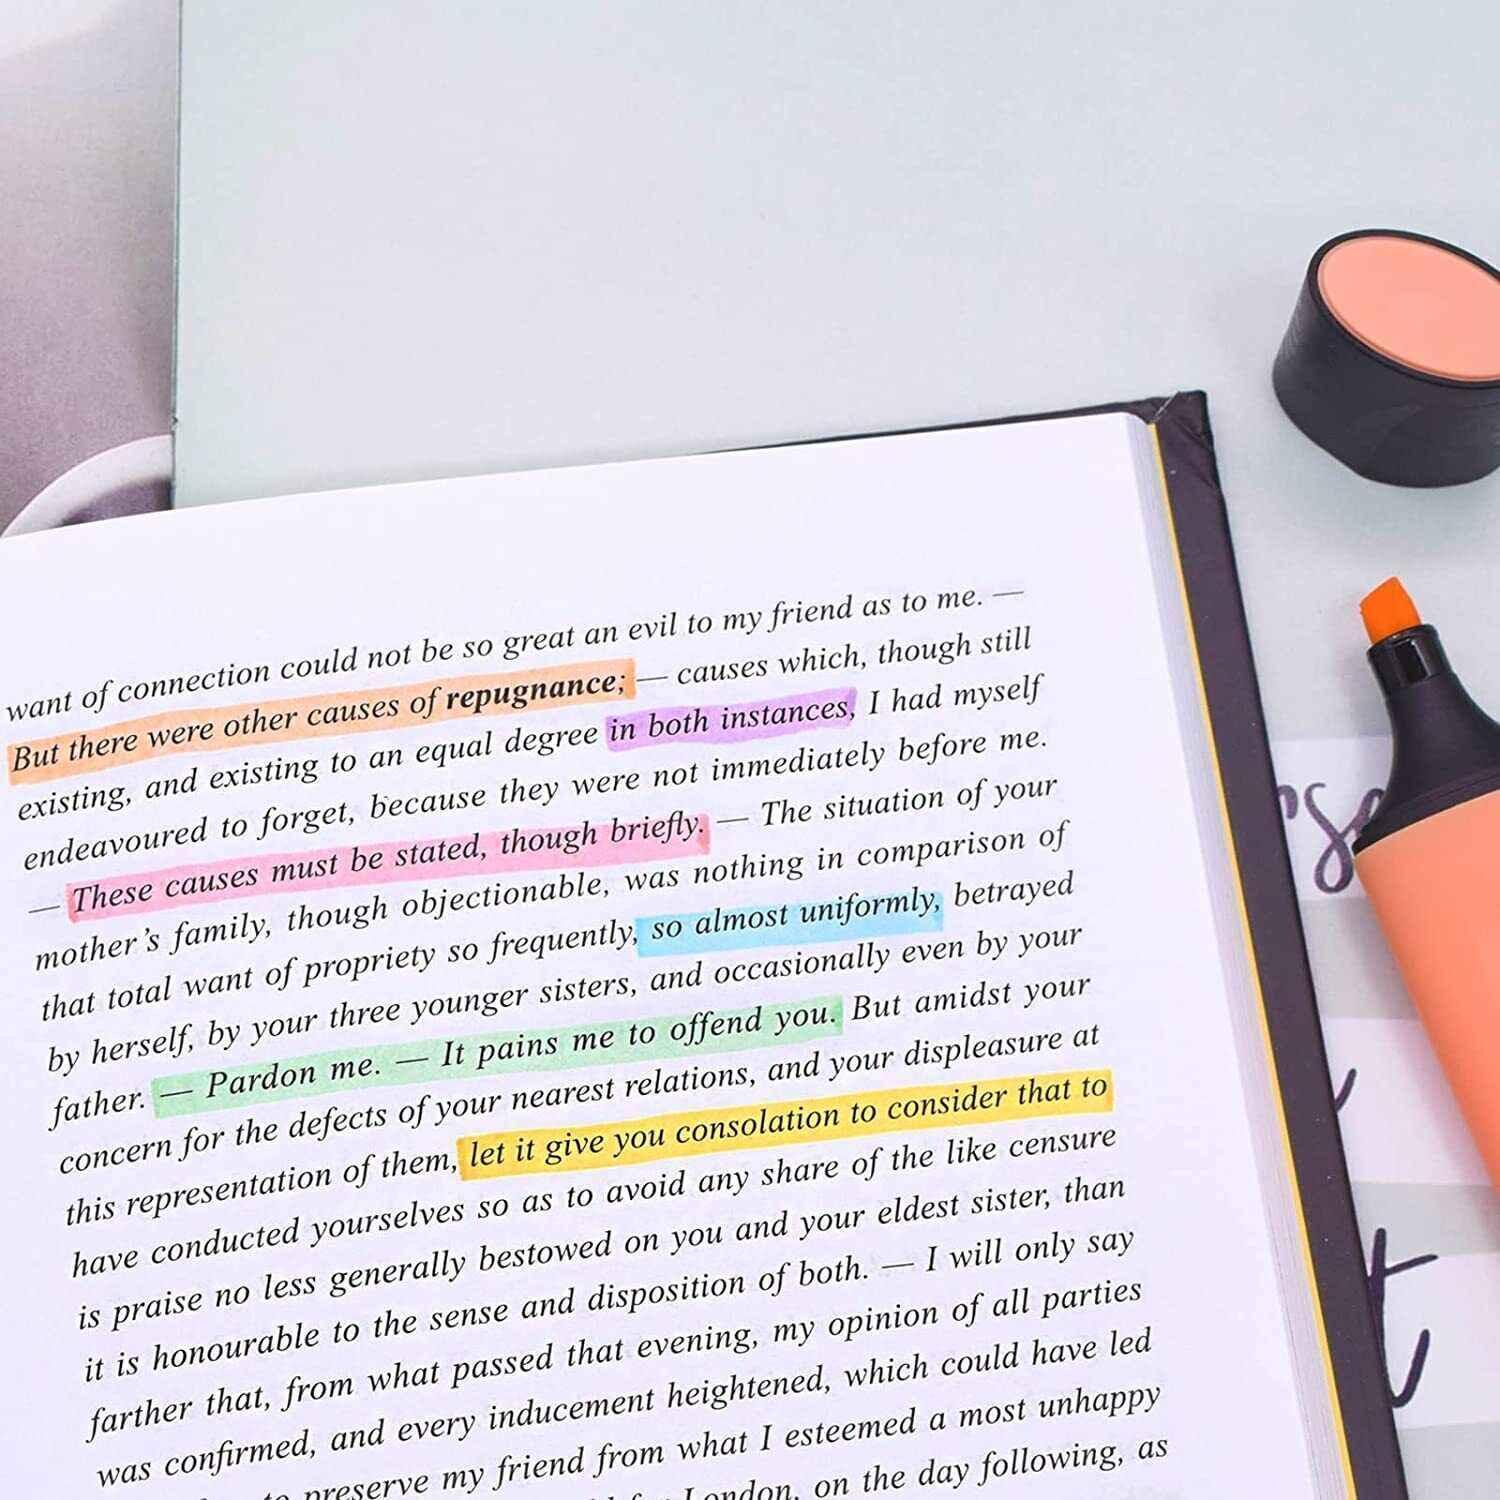 want of connection could not be so great an evil to my friend as to me. —
But there were other causes of repugnance; — causes which, though still
existing, and existing to an equal degree in both instances, I had myself
endeavoured to forget, because they were not immediately before me.
— These causes must be stated, though briefly. — The situation of your
mother’s family, though objectionable, was nothing in comparison of
that total want of propriety so frequently, so almost uniformly, betrayed
by herself, by your three younger sisters, and occasionally even by your
father. — Pardon me. — It pains me to offend you. But amidst your
concern for the defects of your nearest relations, and your displeasure at
this representation of them, let it give you consolation to consider that to
have conducted yourselves so as to avoid any share of the like censure
is praise no less generally bestowed on you and your eldest sister, than
it is honourable to the sense and disposition of both. — I will only say
farther that, from what passed that evening, my opinion of all parties
was confirmed, and every inducement heightened, which could have led
to preserve my friend from what I esteemed a most unhappy
London, on the day following, as